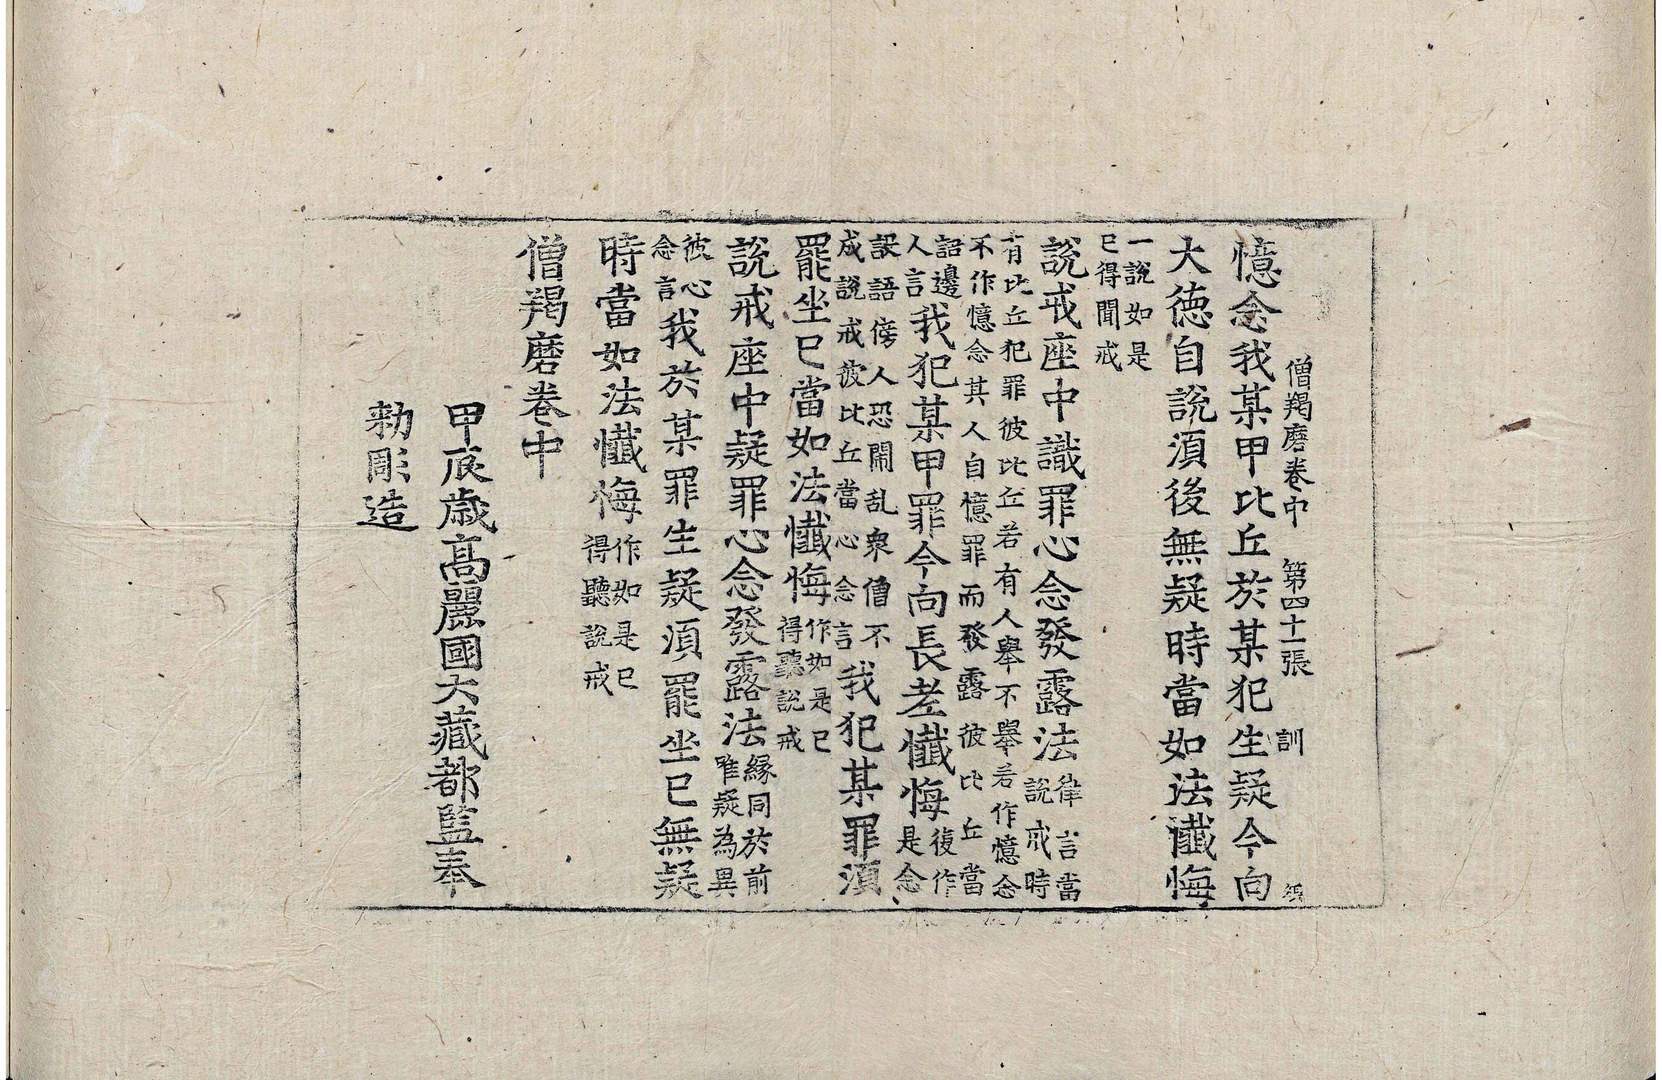 僧羯磨卷中 第四十一張 訓
憶念我某甲比丘於某犯生疑今向
大德自說須後無疑時當如法懺悔
一說如是
已得聞戒
說戒座中識罪心念發露法律言當說戒時
有比丘犯罪彼比丘若有人舉不舉若作憶念
不作憶念其人自憶罪而發露彼比丘當
詔邊人言我犯某甲罪今向長老懺悔復作是念
設語傍人恐鬧乱衆僧不成說戒彼比丘當心念言我犯某罪須
罷坐已當如法懺悔作如是已得聽說戒
說戒座中疑罪心念發露法緣同於前唯疑為異
彼心念言我於某罪生疑須罷坐已無疑
時當如法懺悔作如是已得聽說戒
僧羯磨卷中
甲辰歲高麗國大藏都監奉
勑彫造